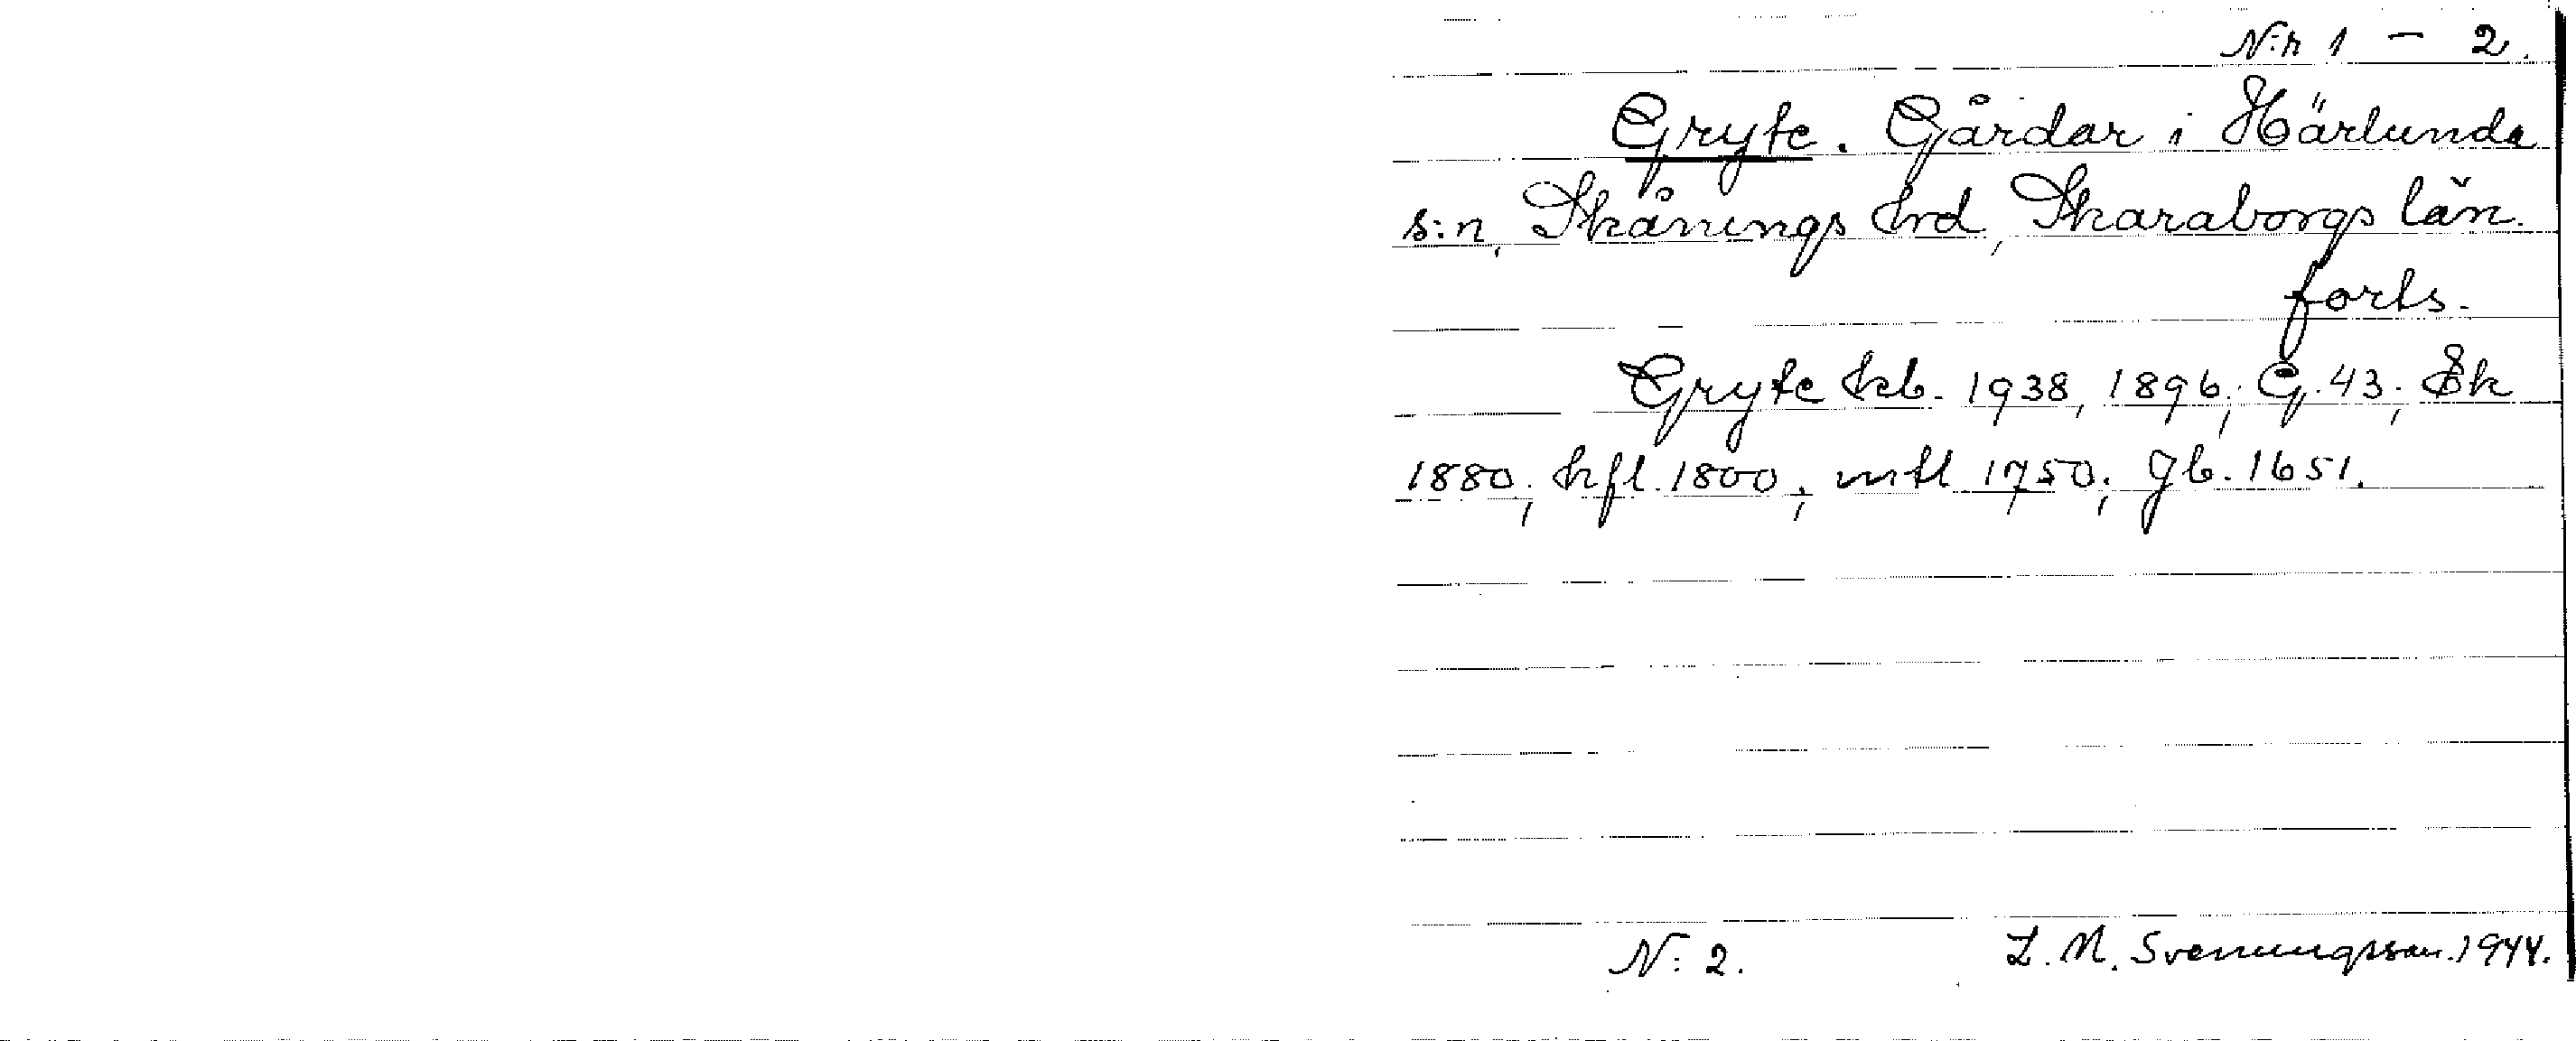 N:r 1 – 2.
Gryte. Gårdar i Härlunda
s:n, Skånings hrd, Skaraborgs län.
forts.
Gryte kb. 1938, 1896; G. 43; Ek
1880; hfl. 1800; mtl 1750; gb. 1651.
N: 2. L. M. Svenungsson. 1944.